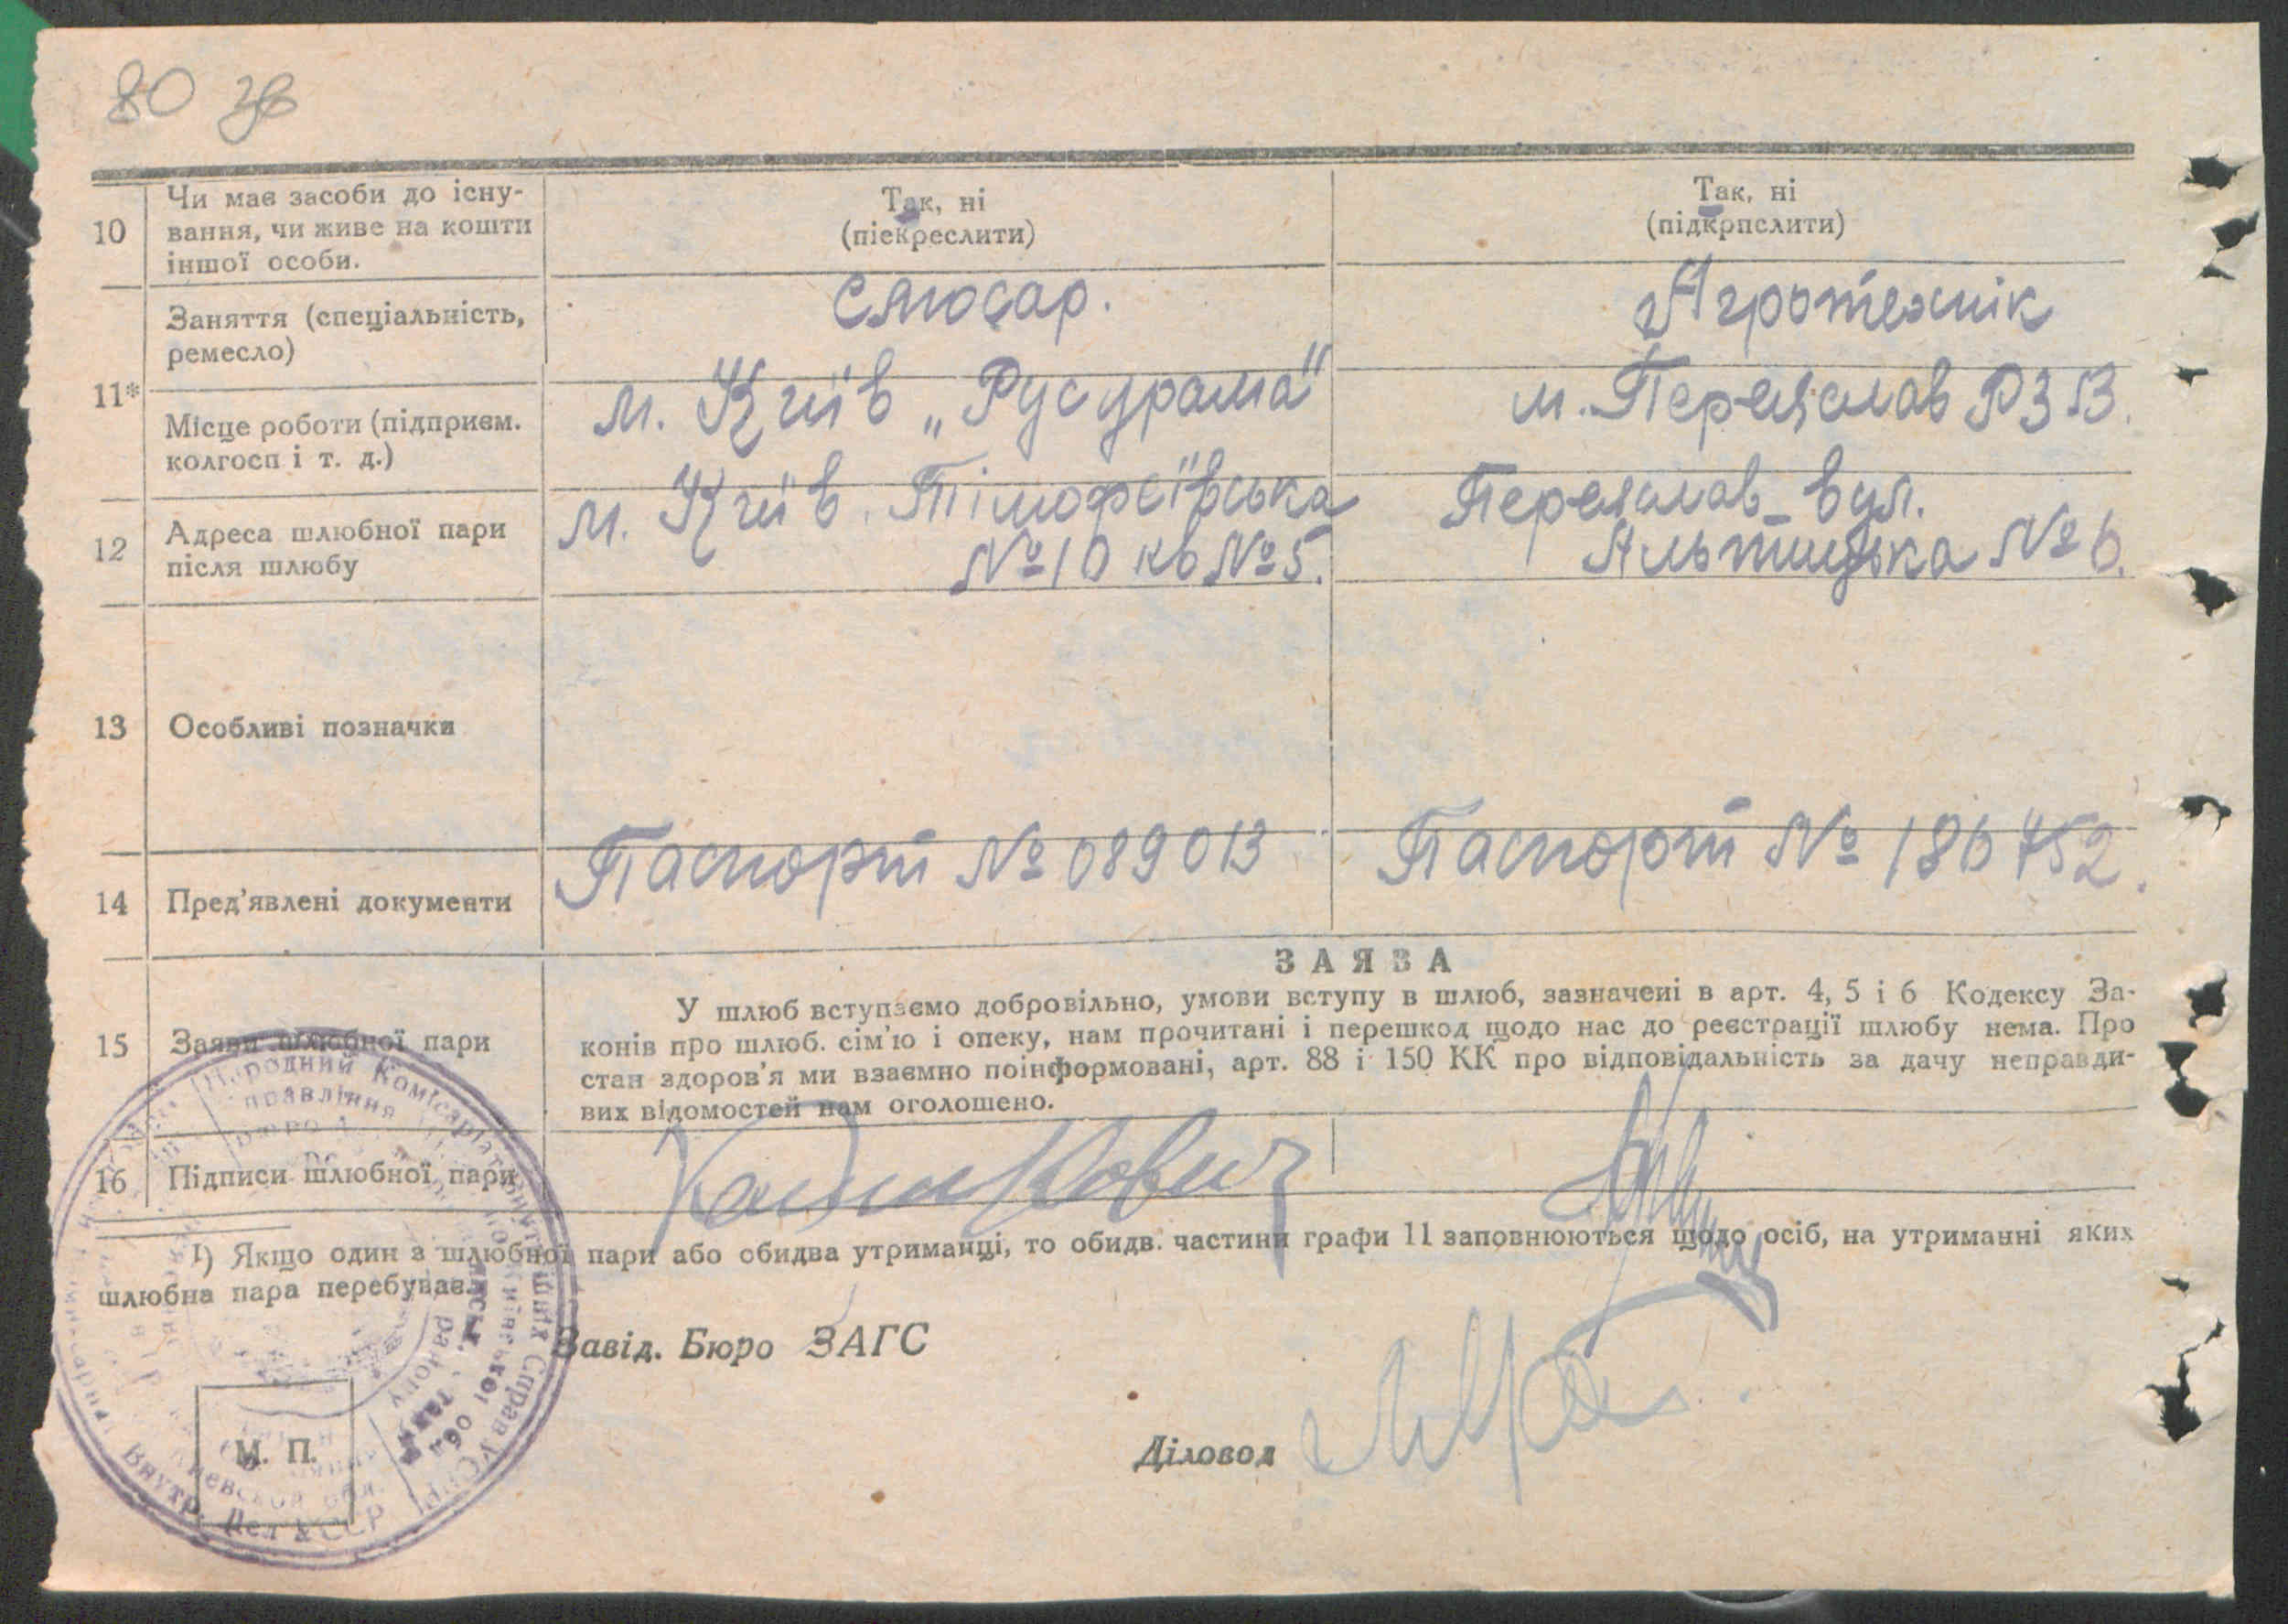 80 зв
10
Чи має засоби до існу-
вання, чи живе на кошти
іншої особи.
Так, ні
(піекреслити)
Так, ні
(підкрпслити)
11*
Заняття (спеціальність,
ремесло)
Слюсар.
Агротехнік
Місце роботи (підприєм.
колгосп і т. д.)
м. Київ „Русдрама"
м. Переяслав РЗВ.
12
Адреса шлюбної пари
після шлюбу
м. Київ. Тімофєївська
№ 10 кв № 5.
Переяслав вул.
Альтицька № 6.
13
Особливі позначки
14
Пред'явлені документи
Паспорт № 089013
Паспорт № 186752.
15
Заяви шлюбної пари
ЗАЯВА
У шлюб вступаємо добровільно, умови вступу в шлюб, зазначені в арт. 4, 5 і 6 Кодексу За-
конів про шлюб. сім'ю і опеку, нам прочитані і перешкод щодо нас до реєстрації шлюбу нема. Про
стан здоров'я ми взаємно поінформовані, арт. 88 і 150 КК про відповідальність за дачу неправди-
вих відомостей нам оголошено.
16
Підписи шлюбної пари
1) Якщо один з шлюбної пари або обидва утриманці, то обидв. частини графи 11 заповнюються щодо осіб, на утриманні яких
шлюбна пара перебуває.
Завід. Бюро ЗАГС
Діловод
М. П.
Народний Комісаріат Внутрішніх Справ УСРР
Внутр. Дел УССР